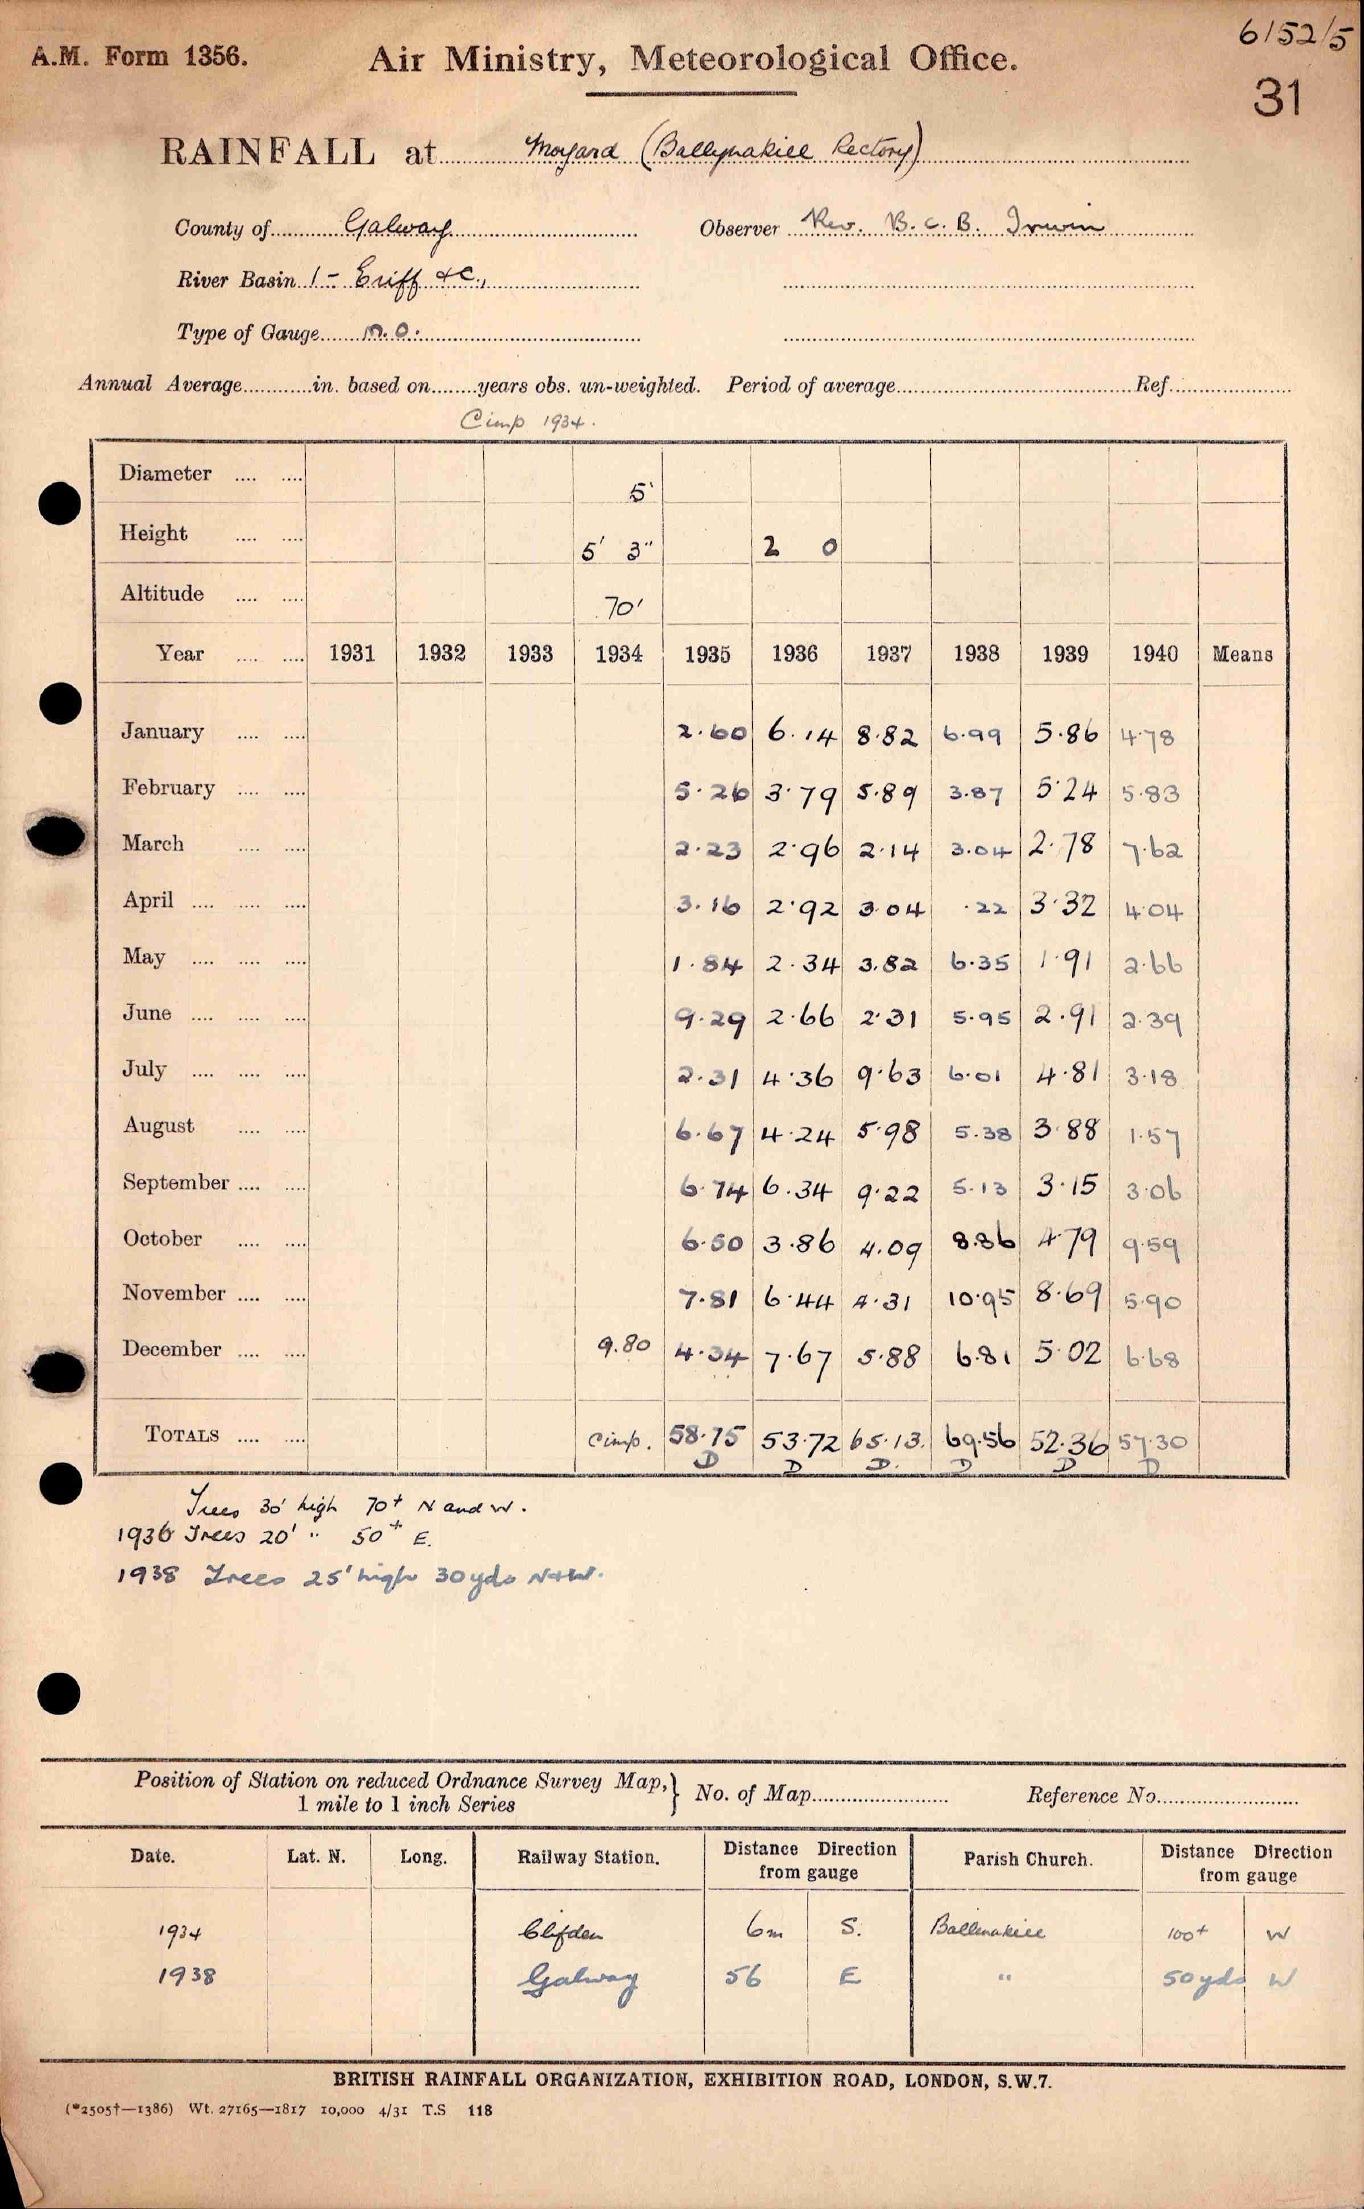 6152/5
A.M. Form 1356. Air Ministry, Meteorological Office.
31
RAINFALL at Moyard (Ballynakill Rectory)
County of Galway Observer Rev. B. C. B. Irwin
River Basin 1 - Eriff &c.,
Type of Gauge M.O.
Annual Average in. based on years obs. un-weighted. Period of average Ref.
Cimp 1934.
Diameter 5"
Height 5' 3" 2 0
Altitude 70'
Year 1931 1932 1933 1934 1935 1936 1937 1938 1939 1940 Means
January 2.60 6.14 8.82 6.99 5.86 4.78
February 5.26 3.79 5.89 3.87 5.24 5.83
March 2.23 2.96 2.14 3.04 2.78 7.62
April 3.16 2.92 3.04 .22 3.32 4.04
May 1.84 2.34 3.82 6.35 1.91 2.66
June 9.29 2.66 2.31 5.95 2.91 2.39
July 2.31 4.36 9.63 6.01 4.81 3.18
August 6.67 4.24 5.98 5.38 3.88 1.57
September 6.74 6.34 9.22 5.13 3.15 3.06
October 6.50 3.86 4.09 8.86 4.79 9.59
November 7.81 6.44 4.31 10.95 8.69 5.90
December 9.80 4.34 7.67 5.88 6.81 5.02 6.68
TOTALS Cimp. 58.75 53.72 65.13. 69.56 52.36 57.30
D D D. D D D
Trees 30' high 70+ N and W.
1936 Trees 20' " 50+ E.
1938 Trees 25' high 30yds N+W.
Position of Station on reduced Ordnance Survey Map, } No. of Map Reference No.
1 mile to 1 inch Series
Date. Lat. N. Long. Railway Station. Distance Direction from gauge Parish Church. Distance Direction from gauge
1934 Clifden 6m S. Ballinakill 100+ W
1938 Galway 56 E " 50yds W
BRITISH RAINFALL ORGANIZATION, EXHIBITION ROAD, LONDON, S.W.7.
(*2505†—1386) Wt. 27165—1817 10,000 4/31 T.S 118